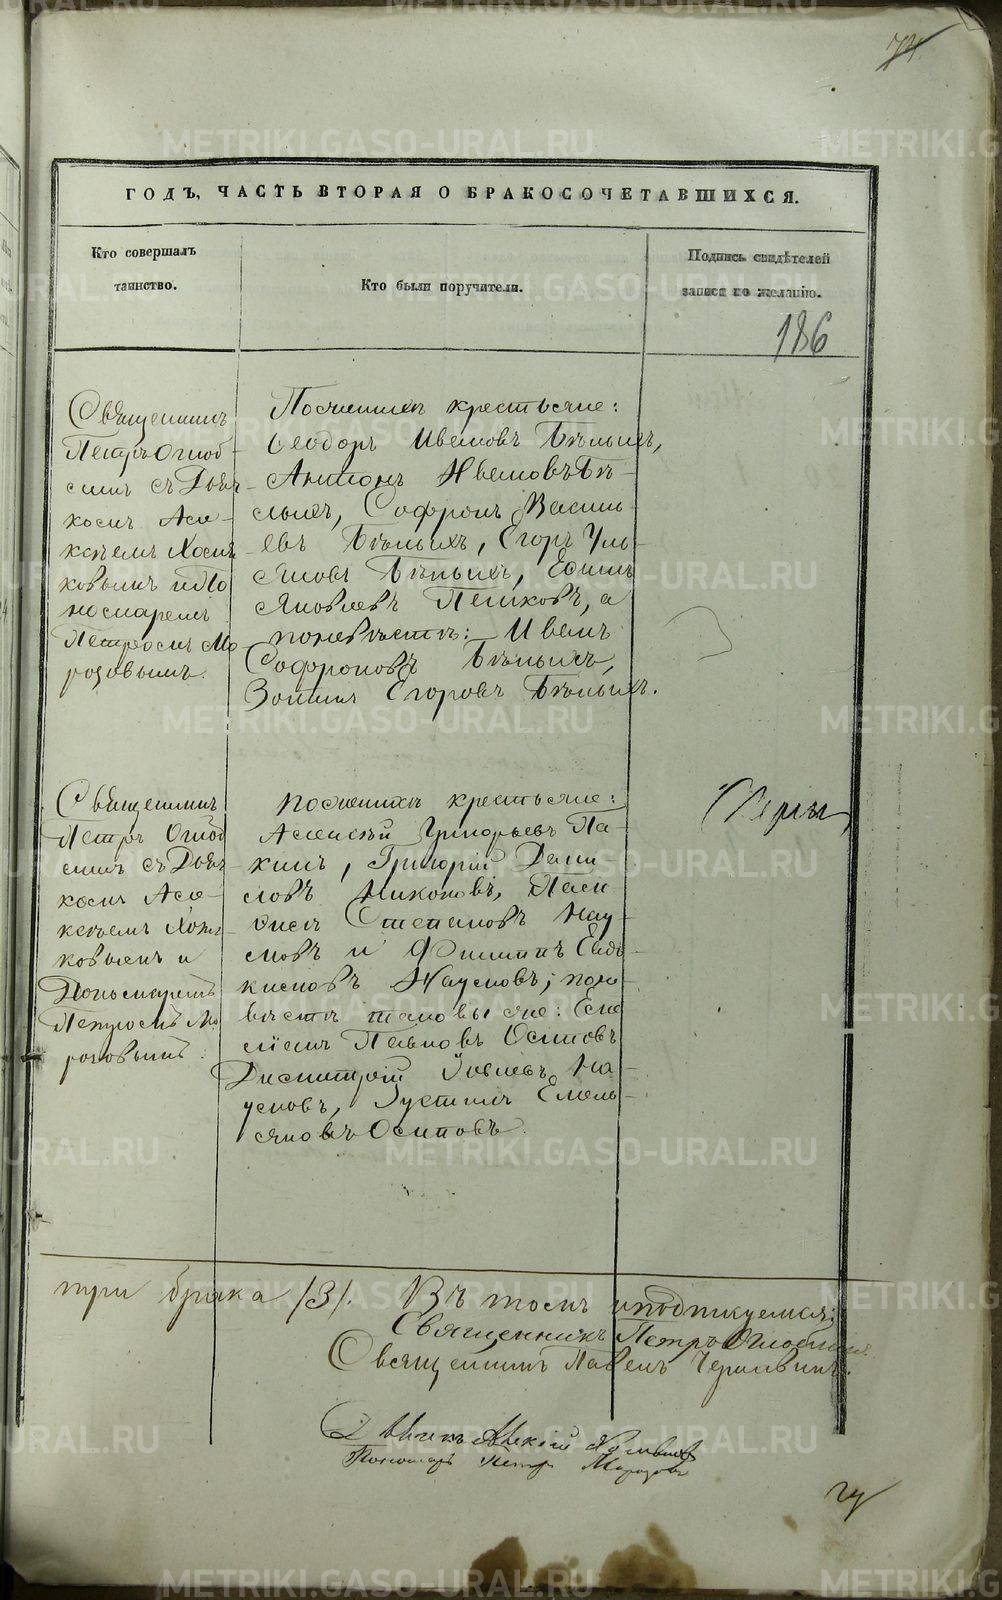 74
ГОДЪ, ЧАСТЬ ВТОРАЯ О БРАКОСОЧЕТАВШИХСЯ.
Кто совершалъ
таинство.
Кто были поручители.
Подпись свидѣтелей
записи по желанію.
186
Священникъ
Петръ Оглоб-
линъ съ Дьяч-
комъ Але-
ксѣемъ
ковымъ и По
номаремъ
Петромъ Мо
розовымъ.
крестьяне:
Ѳеодоръ Ивановъ Бѣлыхъ,
Антонъ Ивановъ Бѣ-
лыхъ, Софронъ Василь-
евъ Бѣлыхъ, Егоръ Уль-
яновъ Бѣлыхъ, Ефимъ
Яковлевъ Пешковъ, а
по невѣстѣ: Иванъ
Софроновъ Бѣлыхъ,
Егоровъ Бѣлыхъ.
Священникъ
Петръ Оглоб
линъ съ Дьяч
комъ Але-
ксѣемъ
ковымъ и
Понамаремъ
Петромъ Мо
розовымъ.
крестьяне:
Алексѣй Григорьевъ Па-
кинъ, Григорій Дани-
ловъ Никоновъ,
Степановъ Нау-
мовъ и Филиппъ Евдо-
кимовъ Наумовъ; по не-
вѣстѣ таковые же: Еме
ліанъ Павловъ Осиповъ
Димитрій Іовлевъ На-
умовъ, Густинъ Емель-
яновъ Осиповъ.
три брака /3/. Въ томъ и подписуемся:
Священникъ Петръ Оглоблинъ.
Священникъ Павелъ
Дьячекъ Алексій
Пономарь Петръ Морозовъ
74
METRIKI.GASO-URAL.RU